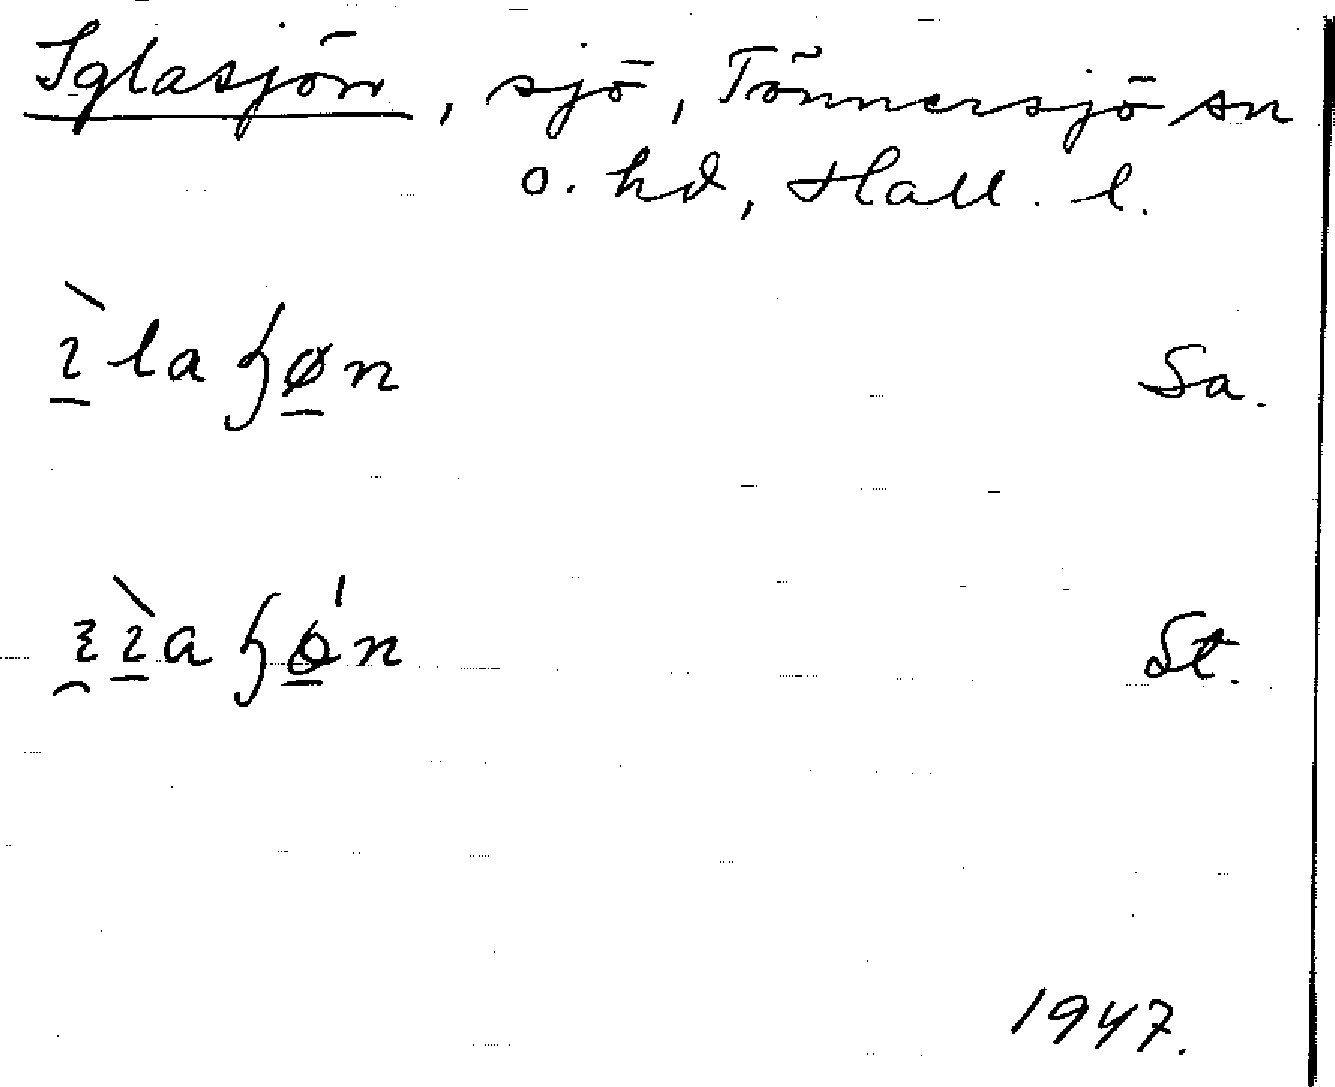 Iglasjön, sjö, Tönnersjö sn
o. hd, Hall. l.
Sa.
St.
1947.